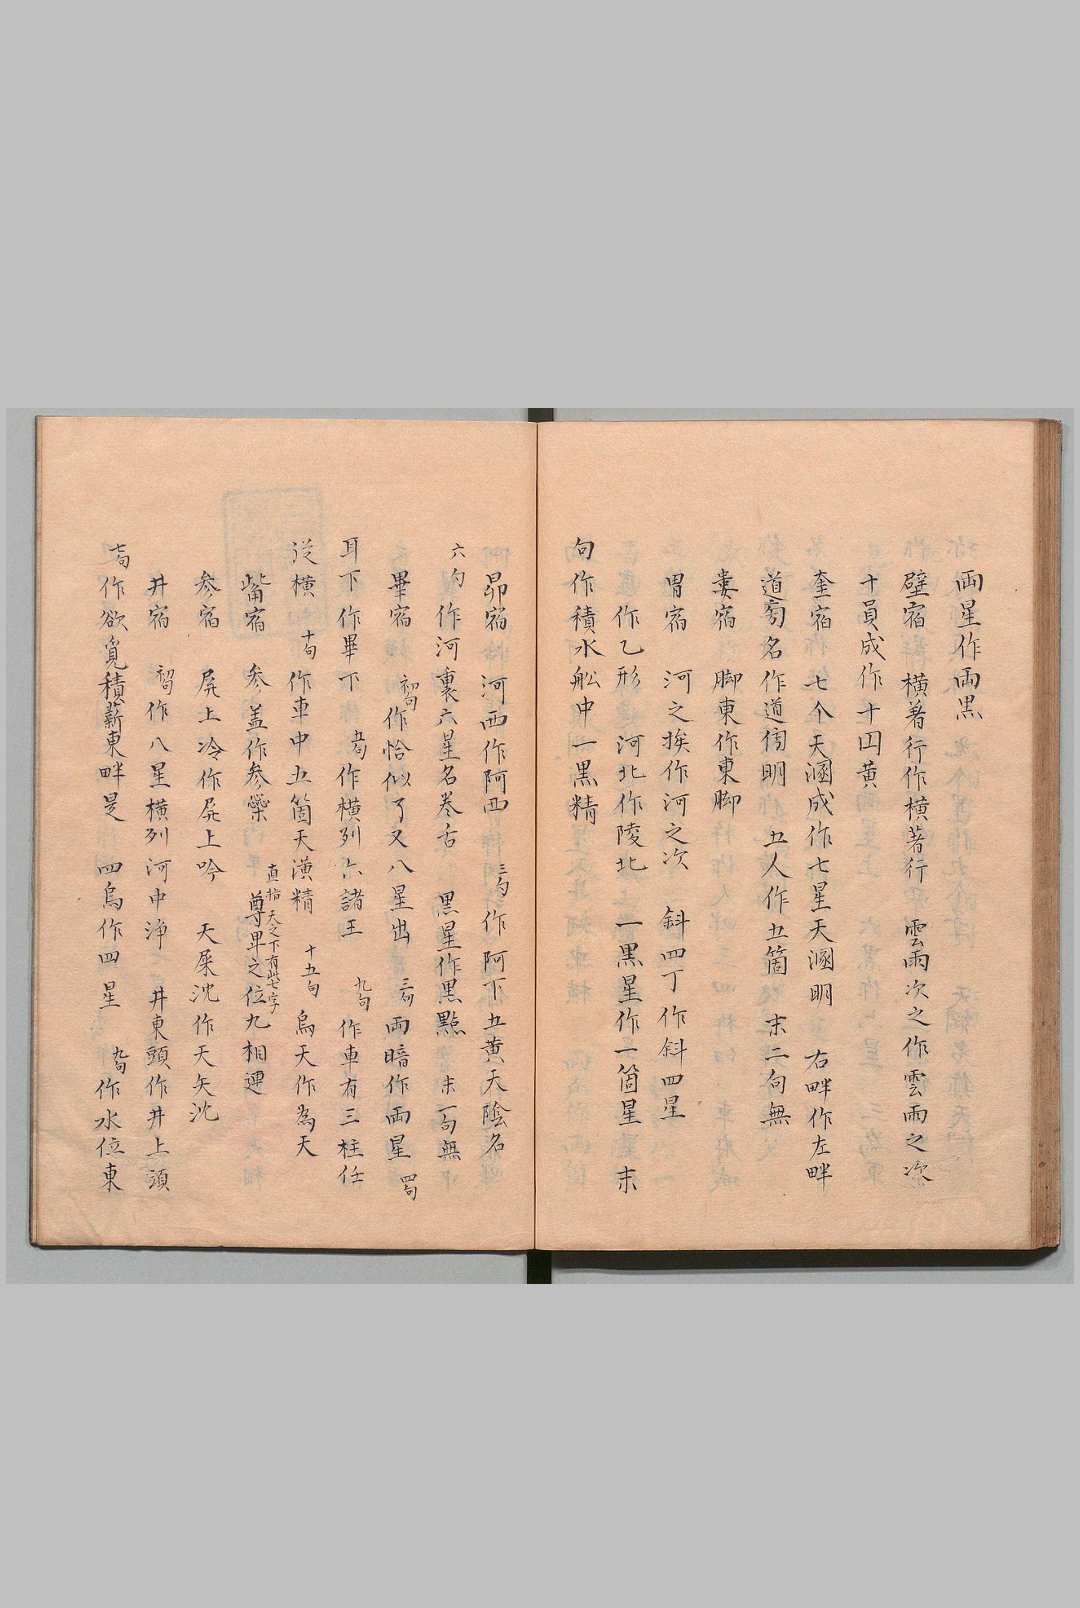 両星作両黒
壁宿 横著行作横著行 雲雨次之作雲雨之次
十員成作十四黄
奎宿 七个天溷成作七星天溷明 右畔作左畔
道旁名作道傍明 五人作五箇 末二句無
婁宿 脚東作東脚
胃宿 河之挨作河之次 斜四丁作斜四星
作乙形 河北作陵北 一黒星作一箇星 末
句作積水船中一黒精
昴宿 河西作阿西 三句作阿下五黄天陰名
六句作河裏六星名巻舌 黒星作黒點 末一句無
畢宿 初句作恰似了又八星出 二句両暗作両星 四句
耳下作畢下 五句作横列六諸王 九句作車有三柱任
従横 十句作車中五箇天潢精 十五句烏天作為天
觜宿 参盖作参蘂 直指天之下有此七字 尊卑之位九相連
参宿 屏上冷作屏上吟 天屎沈作天矢沈
井宿 初句作八星横列河中浄 井東頭作井上頭
七句作欲覓積薪東畔是 四烏作四星 九句作水位東